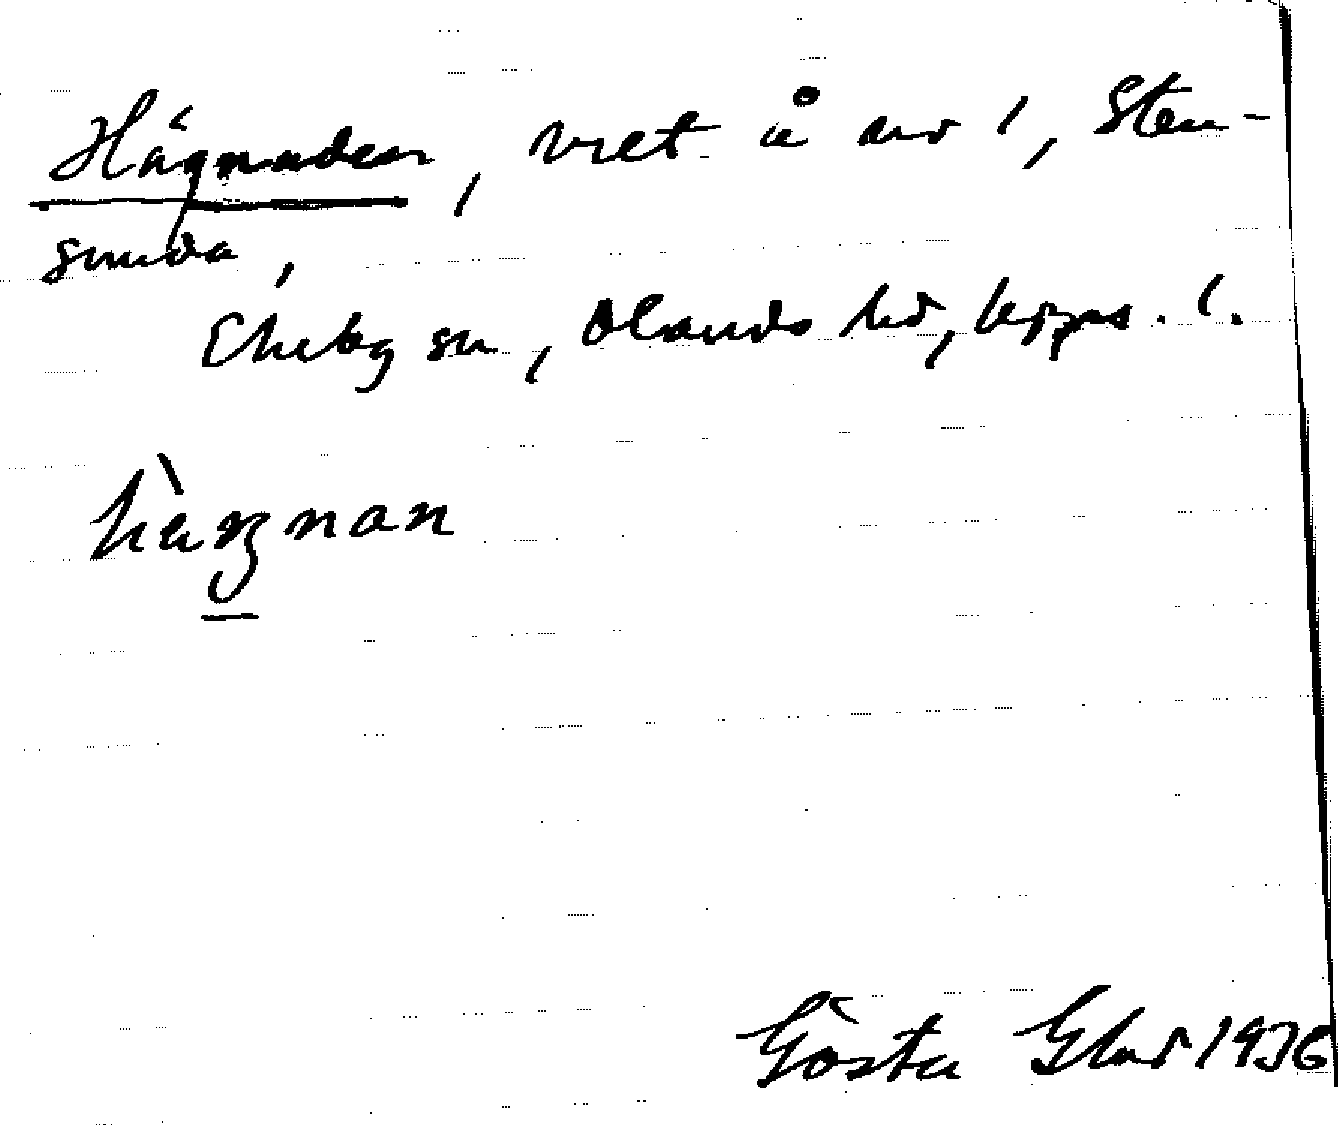 Hägnaden, vret å nr 1, Sten-
sunda,
Ekeby sn, Olands hd, Upps. l.
hàŋnan
Gösta Glad 1936